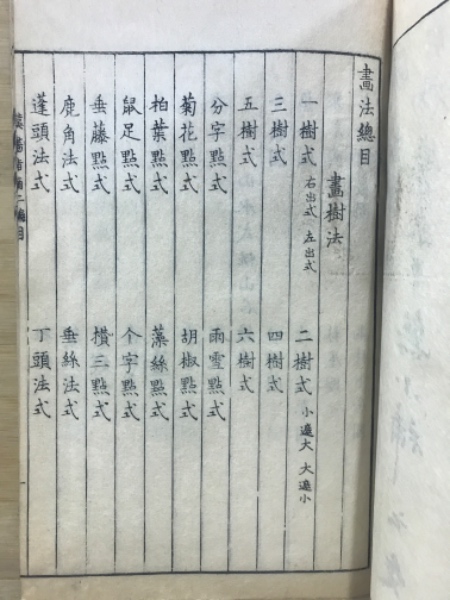 畫法總目
畫樹法
一樹式 右出式 左出式 二樹式 小邊大 大邊小
三樹式 四樹式
五樹式 六樹式
分字點式 雨雪點式
菊花點式 胡椒點式
柏葉點式 藻絲點式
鼠足點式 个字點式
垂藤點式 攢三點式
鹿角法式 垂絲法式
蓬頭法式 丁頭法式